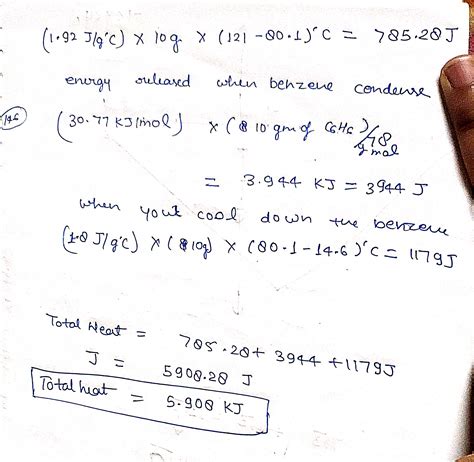 (1.92 J/g°C) × 10g × (121 - 80.1)°C = 785.28J
energy released when benzene condense
(30.77 KJ/mol) × (10 gm of C6H6)/78 g mol
= 3.944 KJ = 3944 J
when your cool down the benzene
(1.8 J/g°C) × (10g) × (80.1 - 14.6)°C = 1179J
Total Heat = 785.28 + 3944 + 1179J
J = 5908.28 J
Total heat = 5.908 KJ